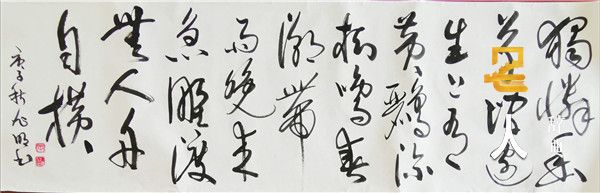 獨憐幽
草澗邊
生上有
黃鸝深
樹鳴春
潮帶
雨晚來
急野渡
無人舟
自橫
庚子秋